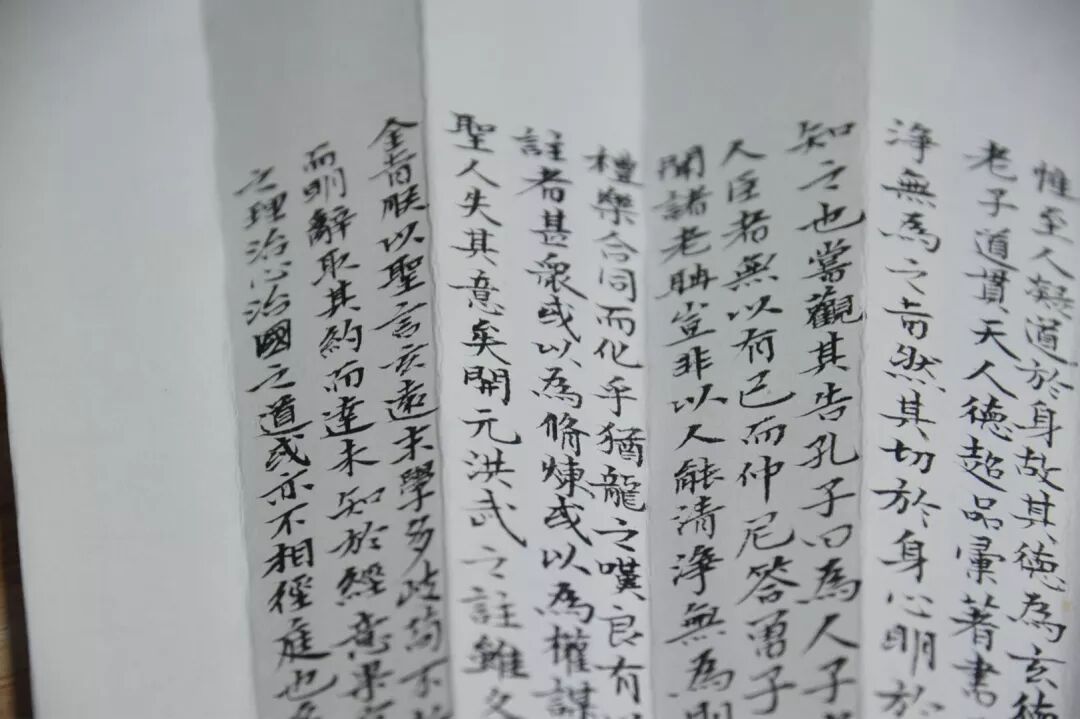 惟至人凝道於身故其德為玄德
老子道貫天人德超品彙著書
淨無為之旨然其切於身心明於
知之也嘗觀其告孔子曰為人子
人臣者無以有己而仲尼答曾子
聞諸老聃豈非以人能清淨無為則
禮樂合同而化乎猶龍之嘆良有
註者甚衆或以為脩煉或以為權謀
聖人失其意矣開元洪武之註雖文
全旨朕以聖言玄遠末學多歧苟不
而明辭取其約而達未知於經意果
之理治心治國之道或亦不相徑庭也